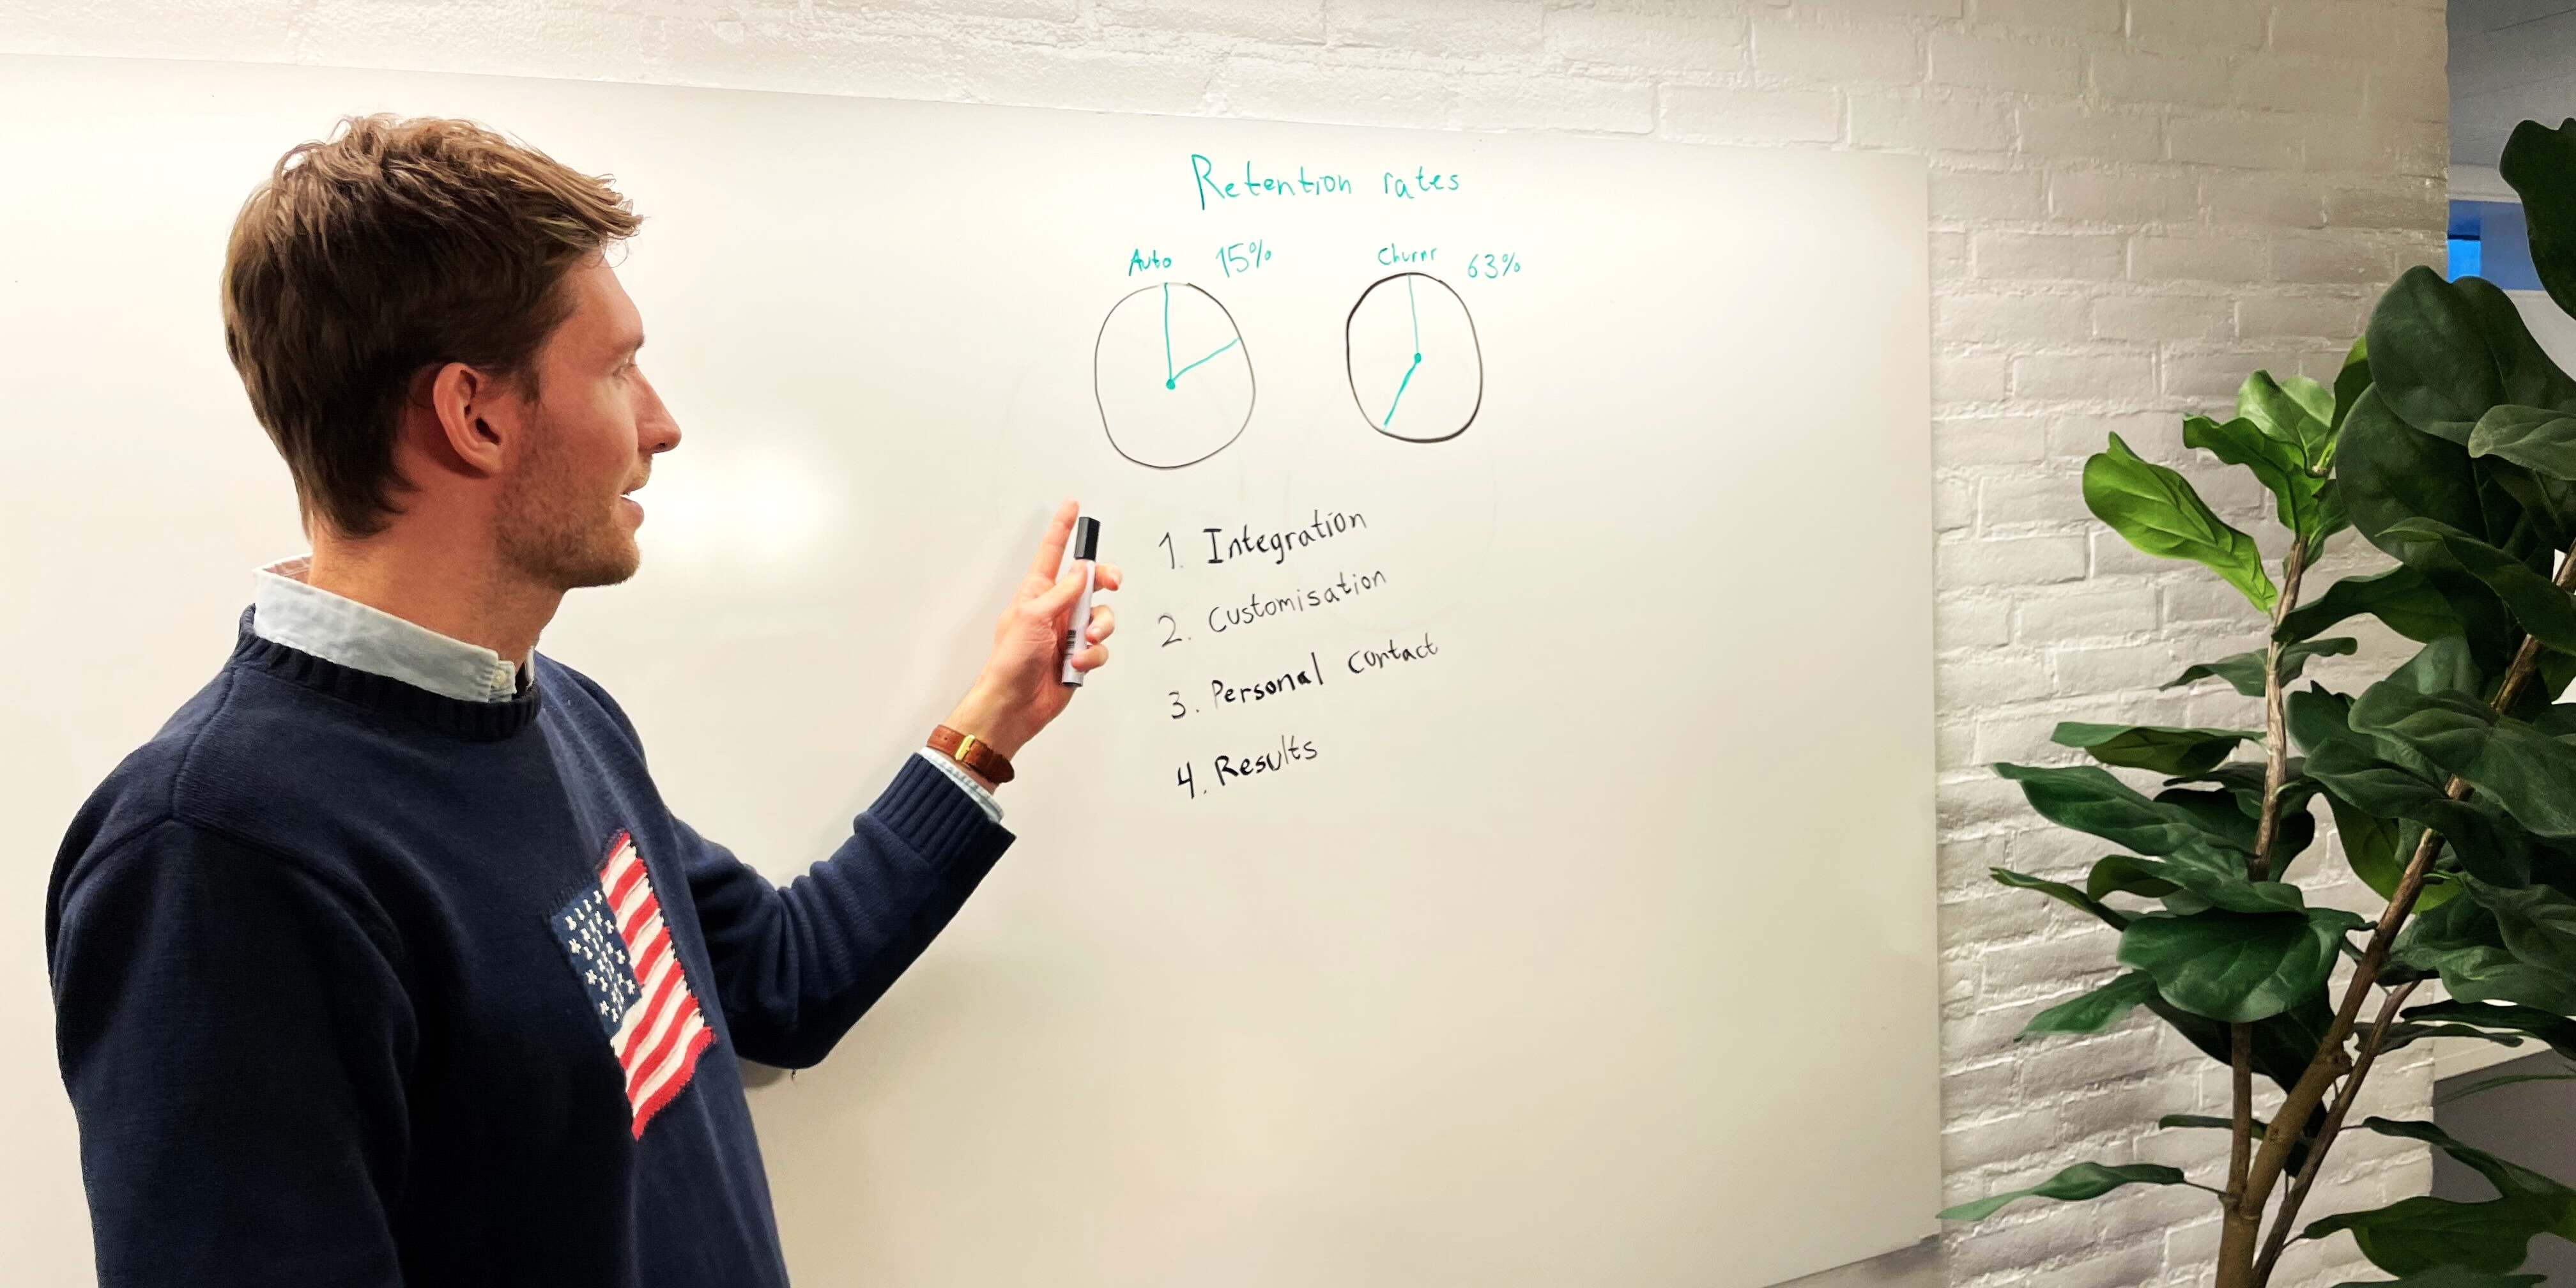 Retention rates
Auto 15%
Churnr 63%
1. Integration
2. Customisation
3. Personal contact
4. Results